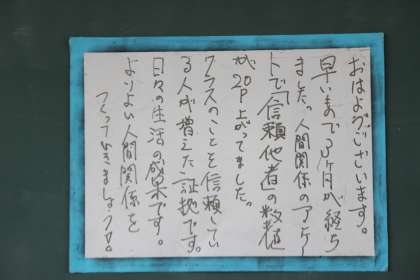 おはようございます。
早いもので3ヶ月が経ち
ました。人間関係のアンケー
トで「信頼他者」の数値
が、20P上がってました。
クラスのことを信頼してい
る人が増えた証拠です。
日々の生活の成果です。
よりよい人間関係を
つくっていきましょうネ。